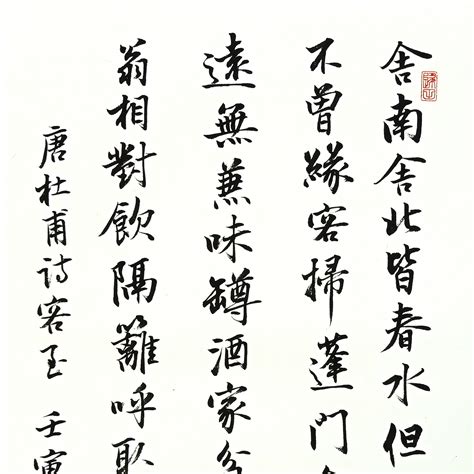 舍南舍北皆春水但
不曾緣客掃蓬門
遠無兼味罇酒家
翁相對飲隔籬呼取
唐杜甫詩客至 壬寅